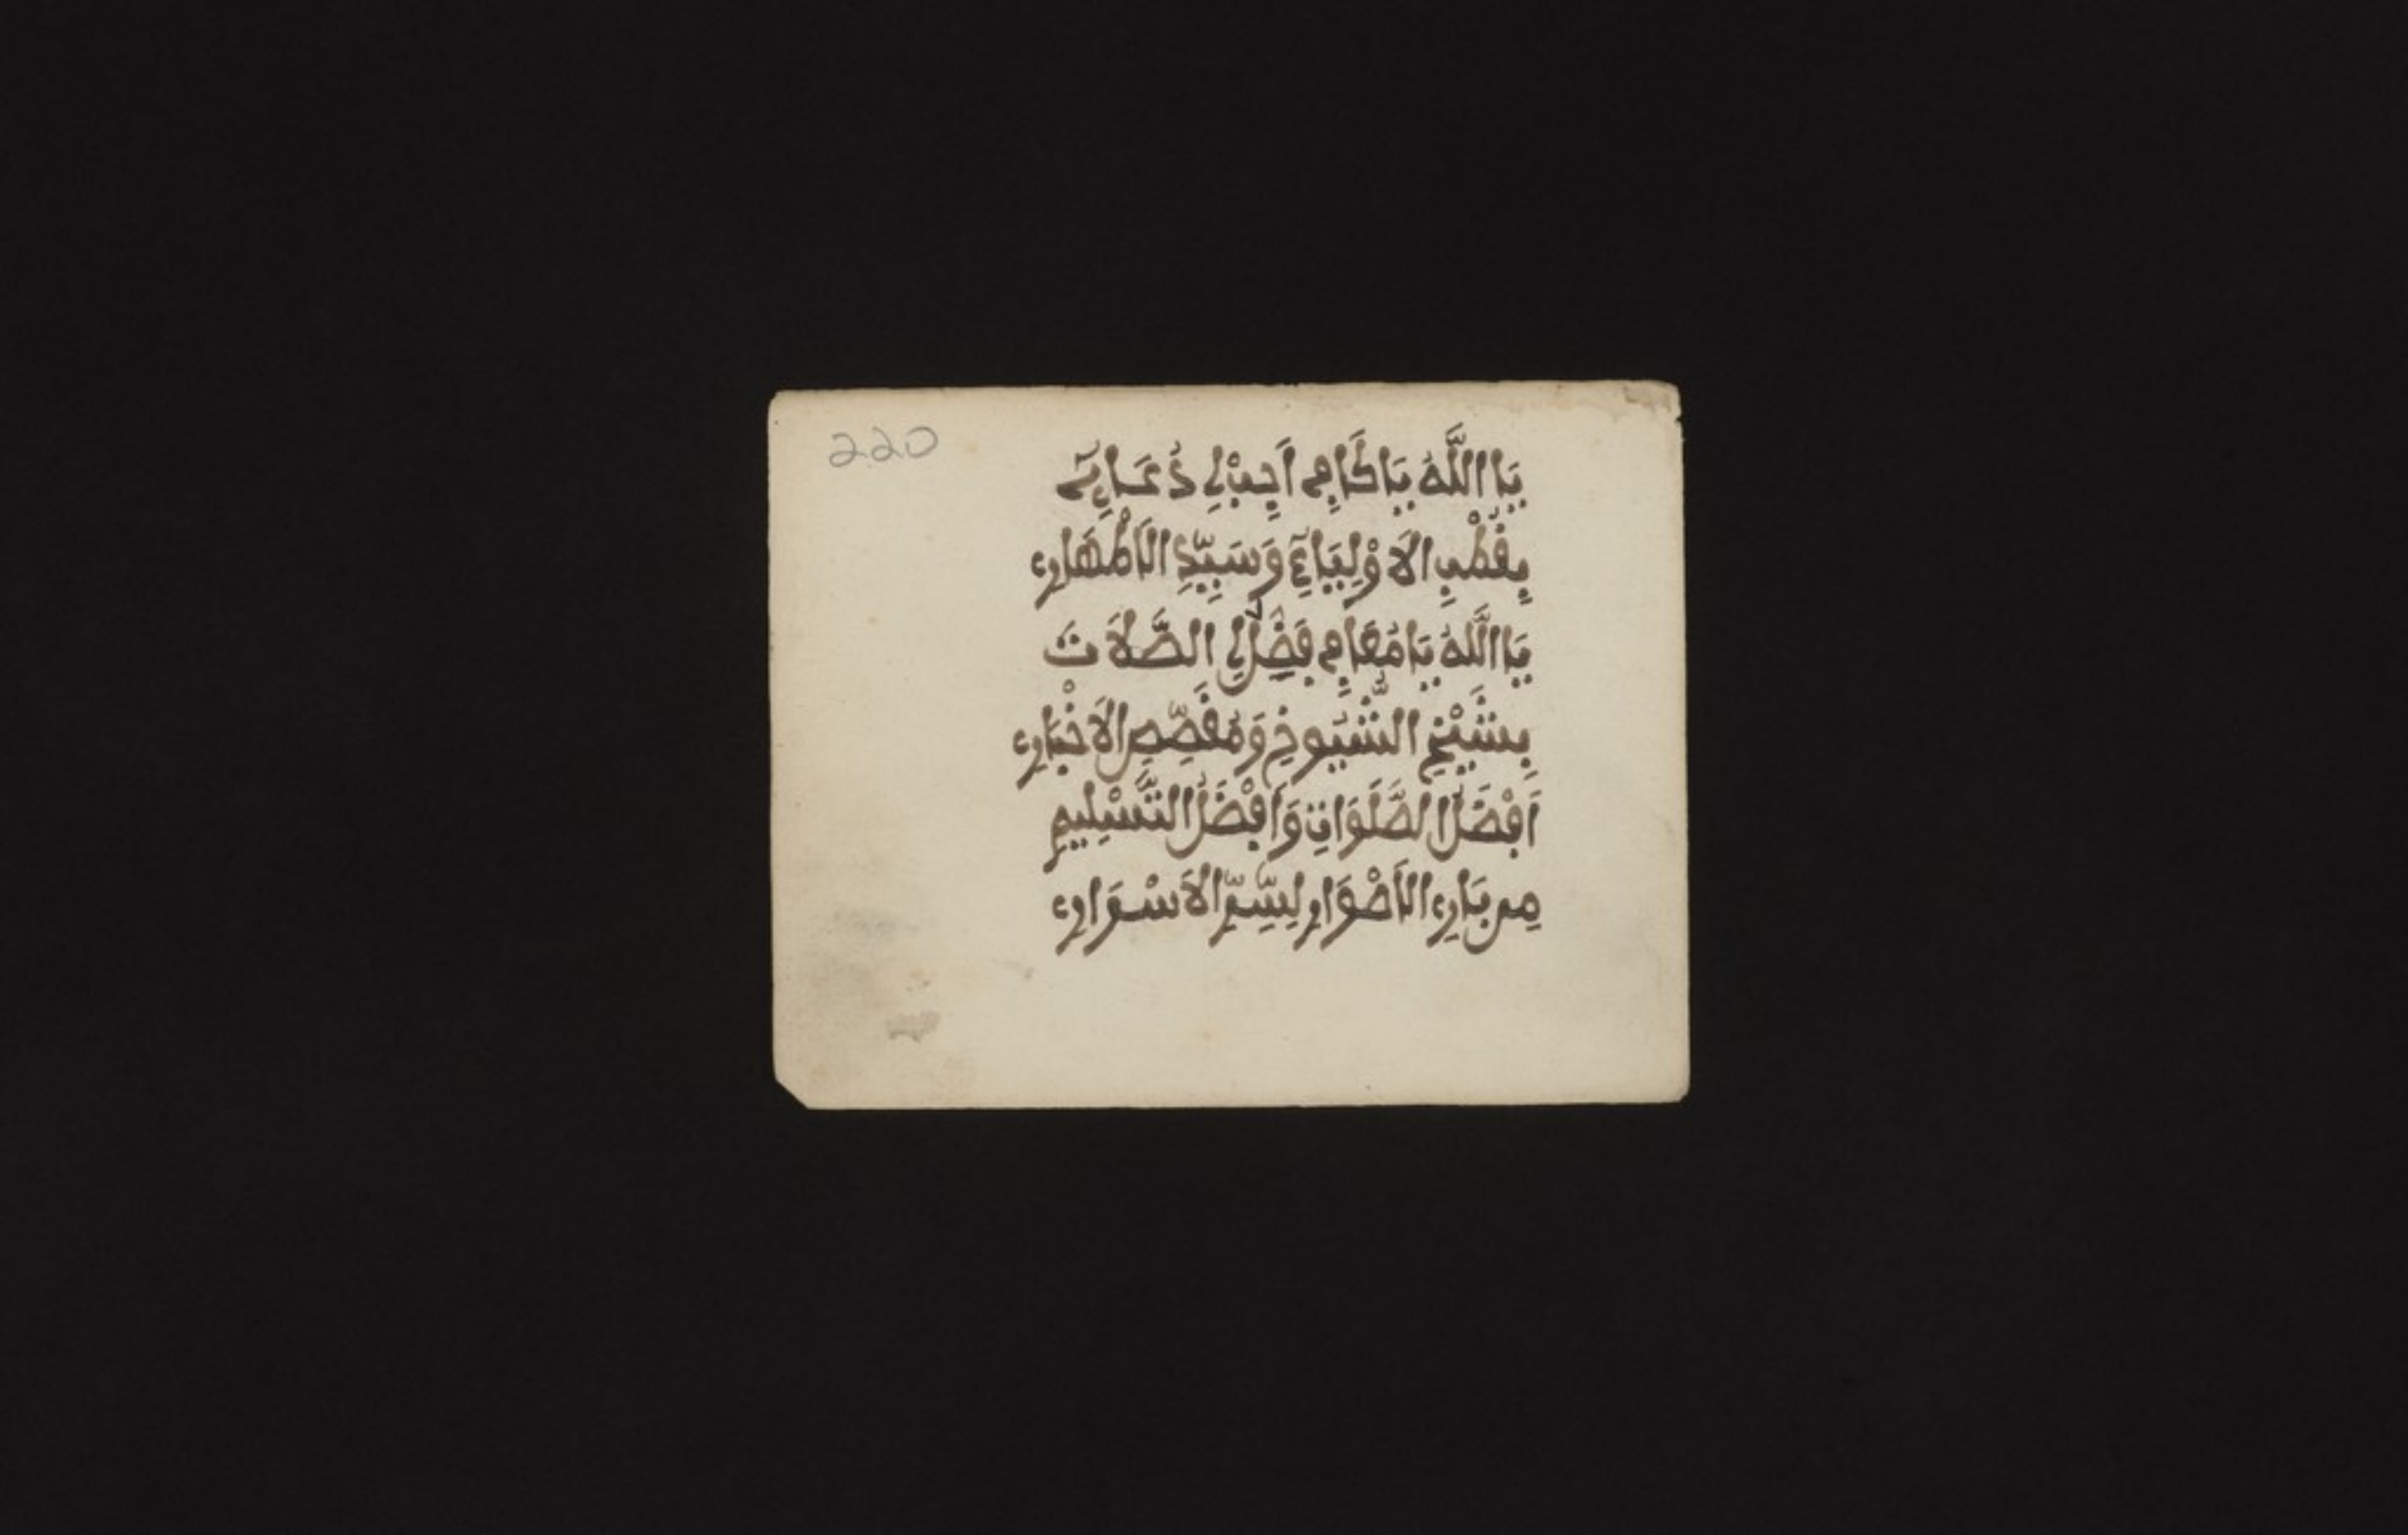 220
يَا اللَّهُ يَا كَافِي اَجِبْ لِي دُعَائِي
بِقُطْبِ الاَوْلِيَاءِ وَسَيِّدِ الاَطْهَارِ
يَا اللَّهُ يَا مُعَافِي فَضِّلْ لِي الصَّلَاتَ
بِشَيْخِ الشُّيُوخِ وَمُقَصِّصِ الاَخْبَارِ
اَفْضَلُ الصَّلَوَاتِ وَاَفْضَلُ التَّسْلِيمِ
مِن بَارِءِ الاَطْوَارِ لِسِّرِّ الاَسْرَارِ